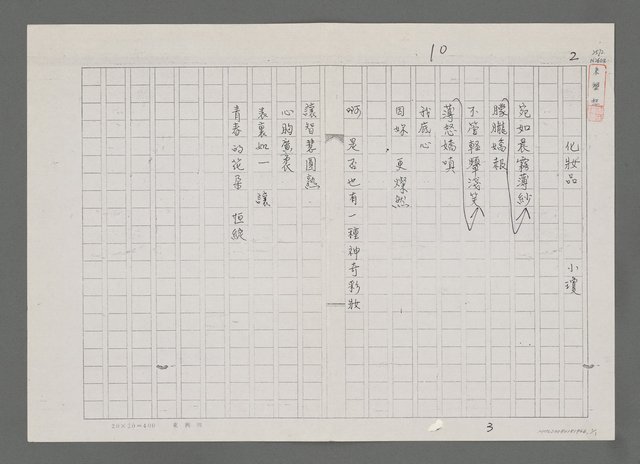 10
2
化妝品　小瓊
宛如晨霧薄紗
朦朧嬌靚
不管輕顰淺笑
薄怒嬌嗔
我底心
因妳　更燦然
啊　是否也有一種神奇彩妝
讓智慧圓熟
心胸寬裹
表裏如一　讓
青春的花朵　恒綻
20×20=400
3